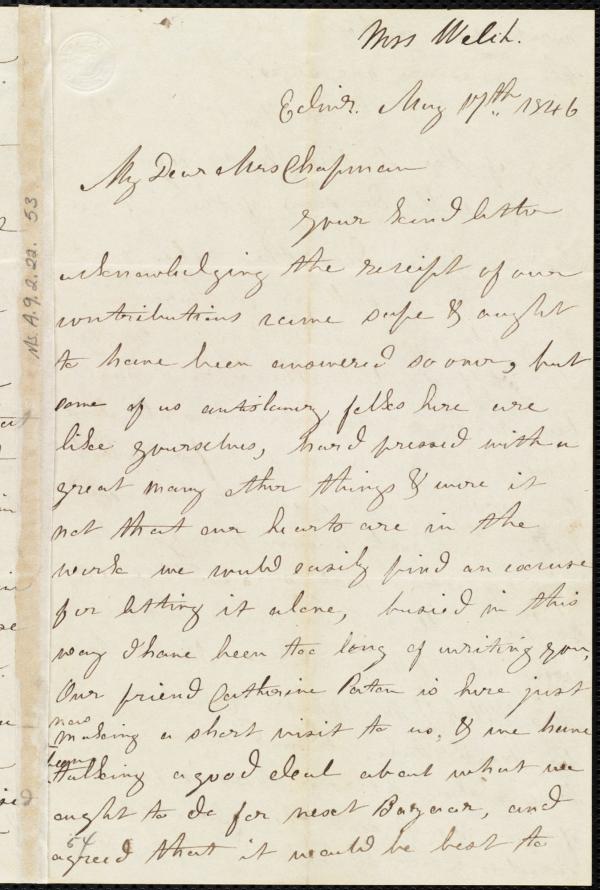 Mrs Welsh.
Edinr. May 17th 1846
My Dear Mrs Chapman
your kind letter
acknowledging the receipt of our
contributions came safe & ought
to have been answered sooner, but
some of us antislavery folks here are
like yourselves, hard pressed with a
great many other things & were it
not that our hearts are in the
work we would easily find an excuse
for letting it alone, busied in this
way I have been too long of writing you,
Our friend Catherine Paton is here just
now
making a short visit to us, & we have
been
talking a good deal about what we
ought to do for next Bazaar, and
agreed that it would be best to
54
Ms. A.9.2.22. 53